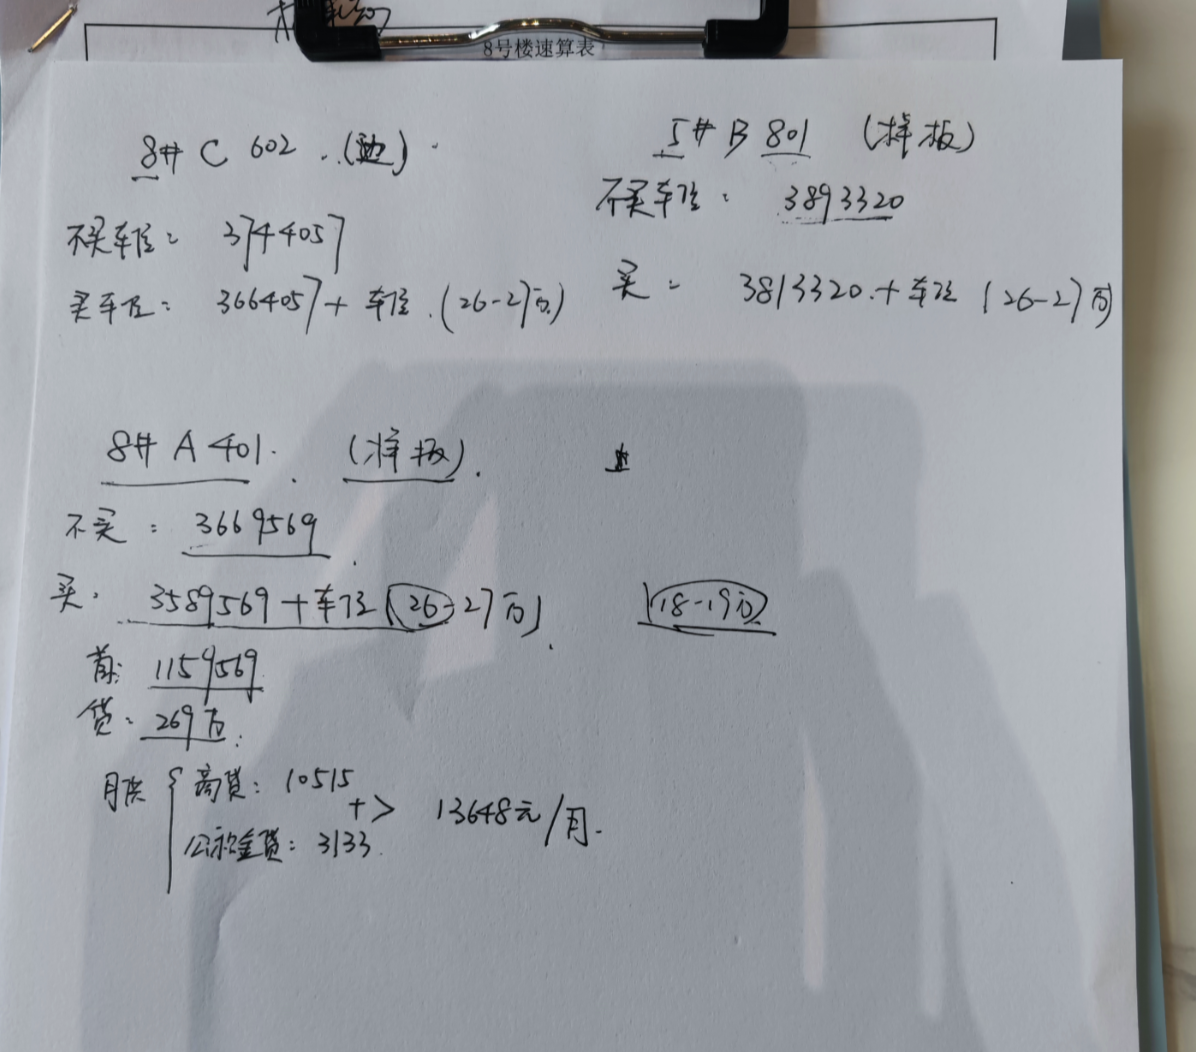 8号楼速算表
8# C 602 (边)
不买车位: 3744057
买车位: 3664057 + 车位 (26-27万)
5# B 801 (样板)
不买车位: 3893320
买: 3813320 + 车位 (26-27万)
8# A 401. (样板).
不买: 3669569
买: 3589569 + 车位 (26-27万)
18-19万
首: 1159569
贷: 269万
月供
商贷: 10515
+ > 13648元/月.
公积金贷: 3133